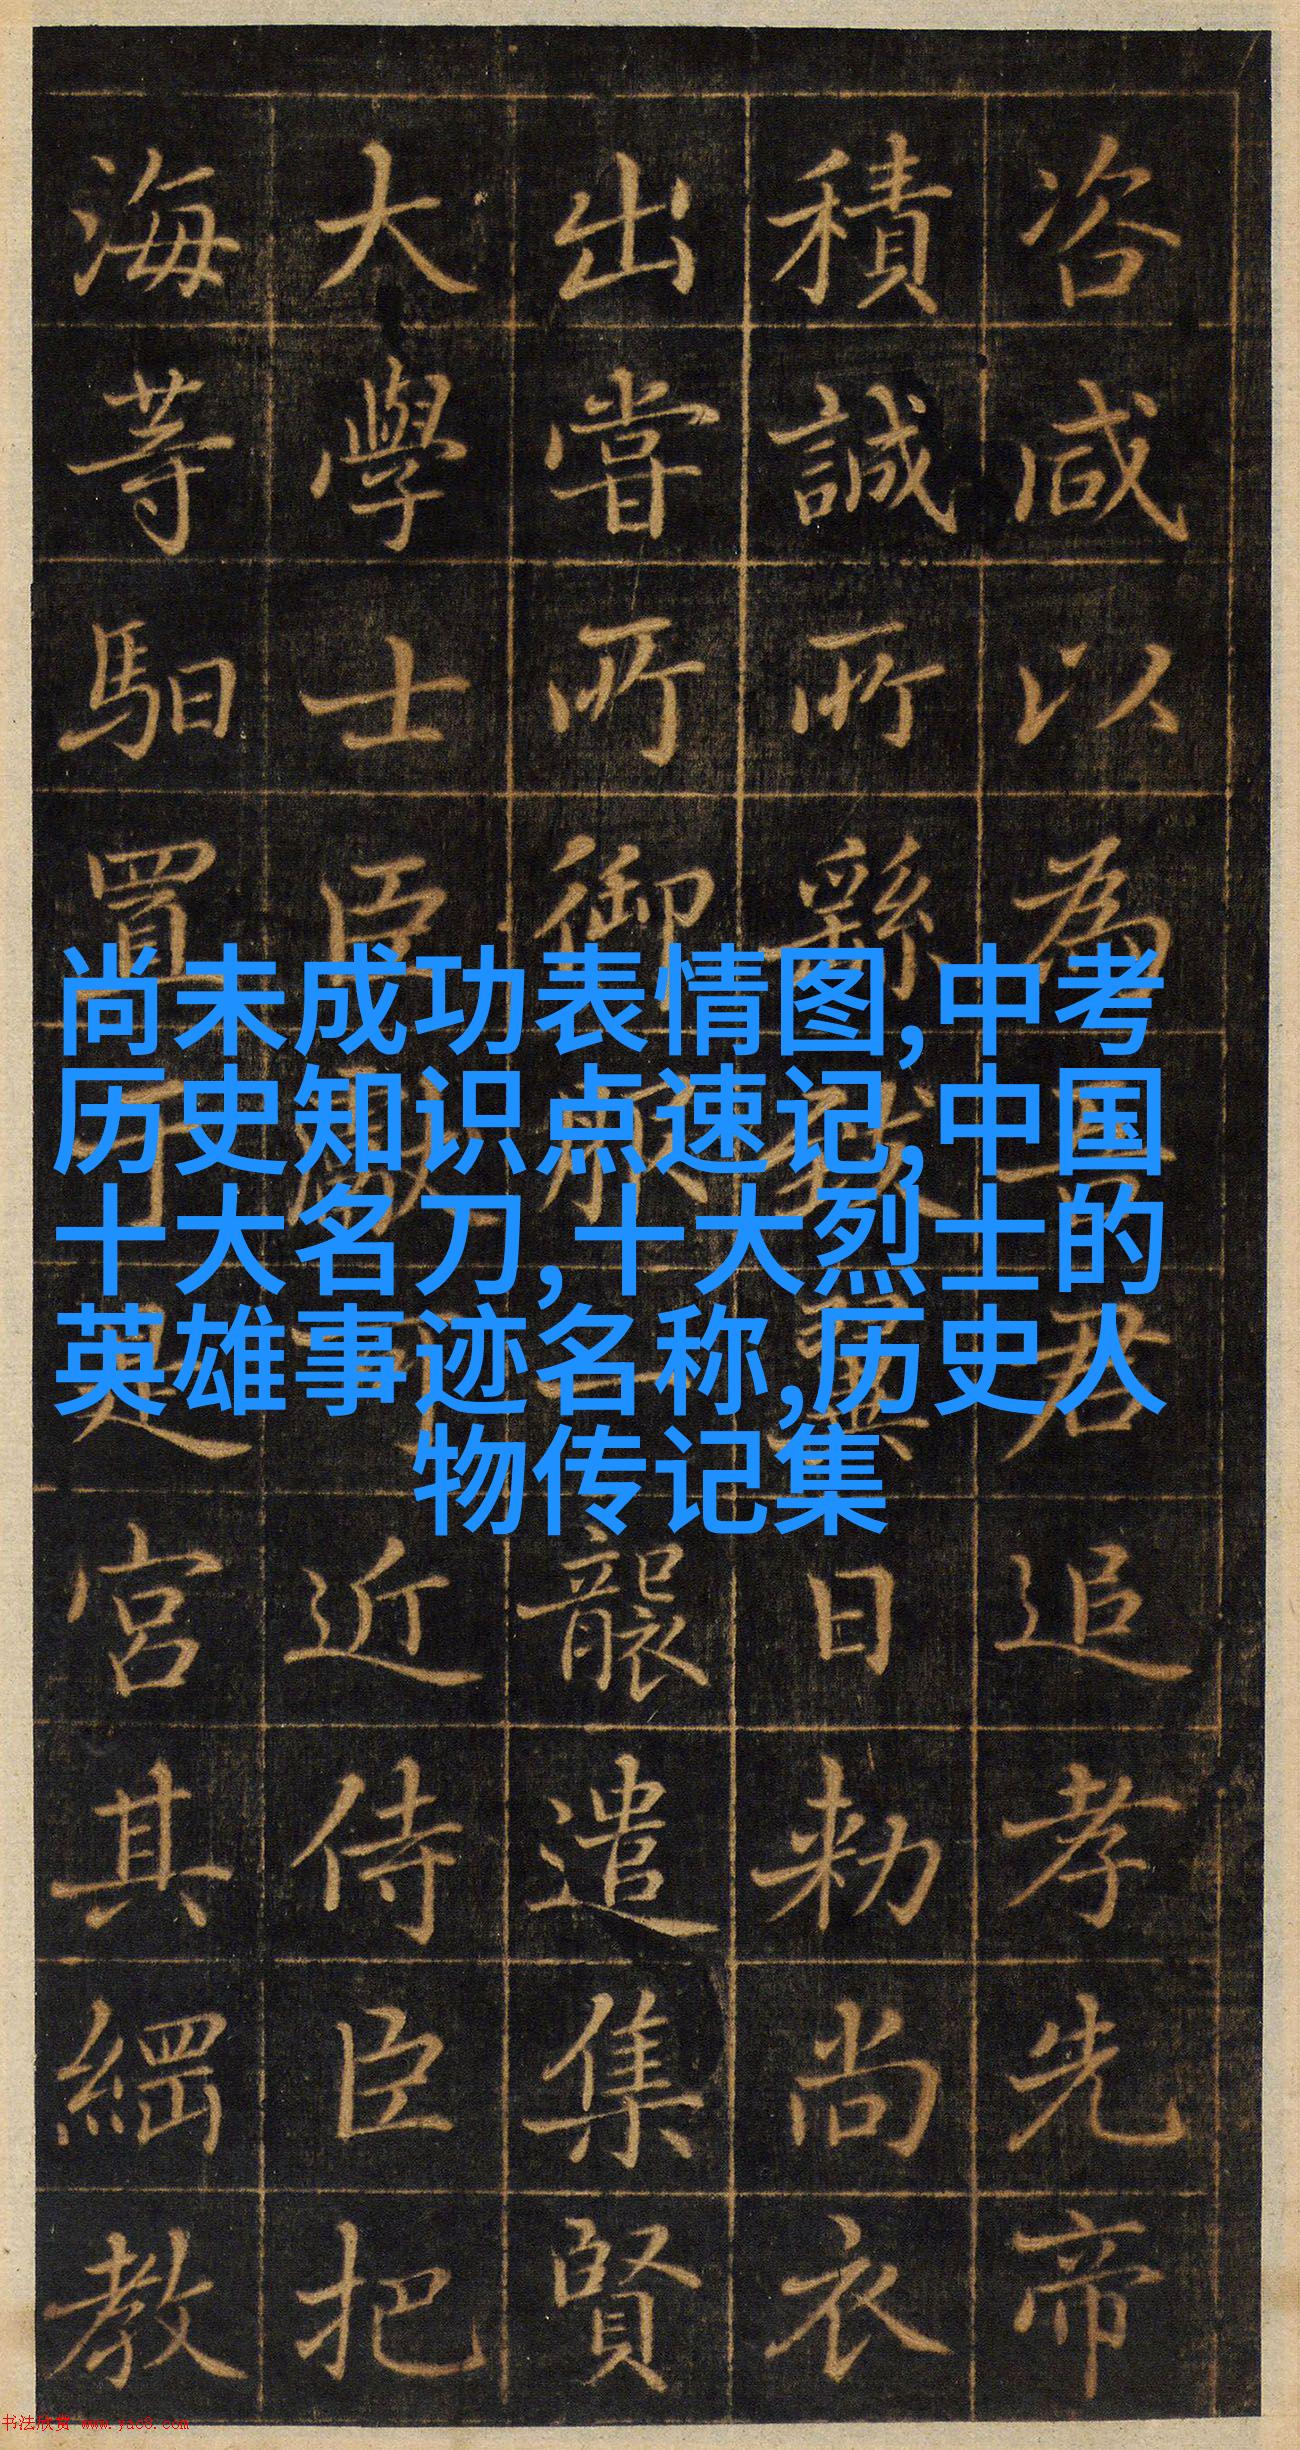 咨咸以為
君追孝先帝
積誠所繇
日勑尚衣
出嘗所御
襲遣集賢
大學士臣
近侍臣把
海等馹置
宮其綱教
尚未成功表情图,中考
历史知识点速记,中国
十大名刀,十大烈士的
英雄事迹名称,历史人
物传记集
书法欣赏 www.yac8.com